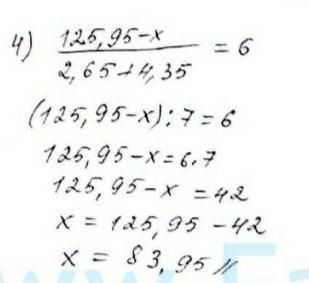 4) (125,95-x)/(2,65+4,35) = 6
(125,95-x):7=6
125,95-x=6·7
125,95-x=42
x = 125,95-42
x = 83,95 //